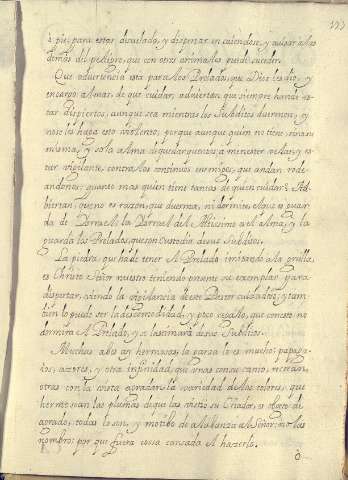 193
ò pie, para estar disvelado, y dispertar en caiendose, y avisar a los
demas del peligro, que con otros animales puede suceder.
Que advertencia esta para los Prelados, que Dios les dio, y
encargo almas, de que cuidar, adviertan, que siempre han de es-
tar dispiertos, aunque sea mientras los Subditos duermen, y
no se les haga esto violento, porque aunque quien no tiene sino a si
misma, y sola alma de que dar quenta, a menester velar, y es-
tar vigilante, contra los continuos enemigos, que andan rode-
andonos; quanto mas quien tiene tantas de quien cuidar?
que no es razon, que duerma, ni dormite, el que es guar-
da de
guarda los Prelados, que son Custodia de sus Subditos.
La piedra, que ha de tener el Prelado imitando a la grulla,
es Christo Señor nuestro teniendo presente su exemplar para
dispertar, viendo la vigilancia de este Pastor cuidadoso, y tam-
bien lo puede ser la descomodidad, y poco regalo, que con esto no
dormira el Prelado, y se lastimará de sus Subditos.
Muchas abes ay hermosas, la garza lo es mucho, papaga-
ios, azores, y otra infinidad, que unas con su canto, recrean,
otras con la vista agradan, la variedad de los colores, que
hermosean las plumas de que las vistio su Criador, es objeto de
agrado, todas lo son, y motibo de alabanza al Señor; no las
nombro; por que fuera cosa cansada el hazerlo.